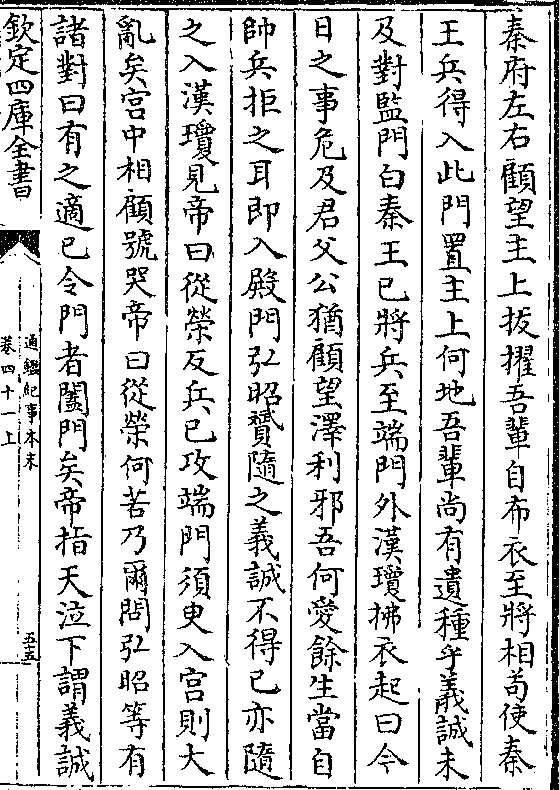 秦府左右顧望主上拔擢吾輩自布衣至將相苟使秦
王兵得入此門置主上何地吾輩尚有遺種乎義誠未
及對監門白秦王已將兵至端門外漢瓊拂衣起曰今
日之事危及君父公猶顧望擇利邪吾何愛餘生當自
帥兵拒之耳即入殿門弘昭贇隨之義誠不得已亦隨
之入漢瓊見帝曰從榮反兵已攻端門須臾入宫則大
亂矣宫中相顧號哭帝曰從榮何苦乃爾問弘昭等有
諸對曰有之適已令門者闔門矣帝指天泣下謂義誠
欽定四庫全書
通鑑紀事本末
卷四十一上
五五